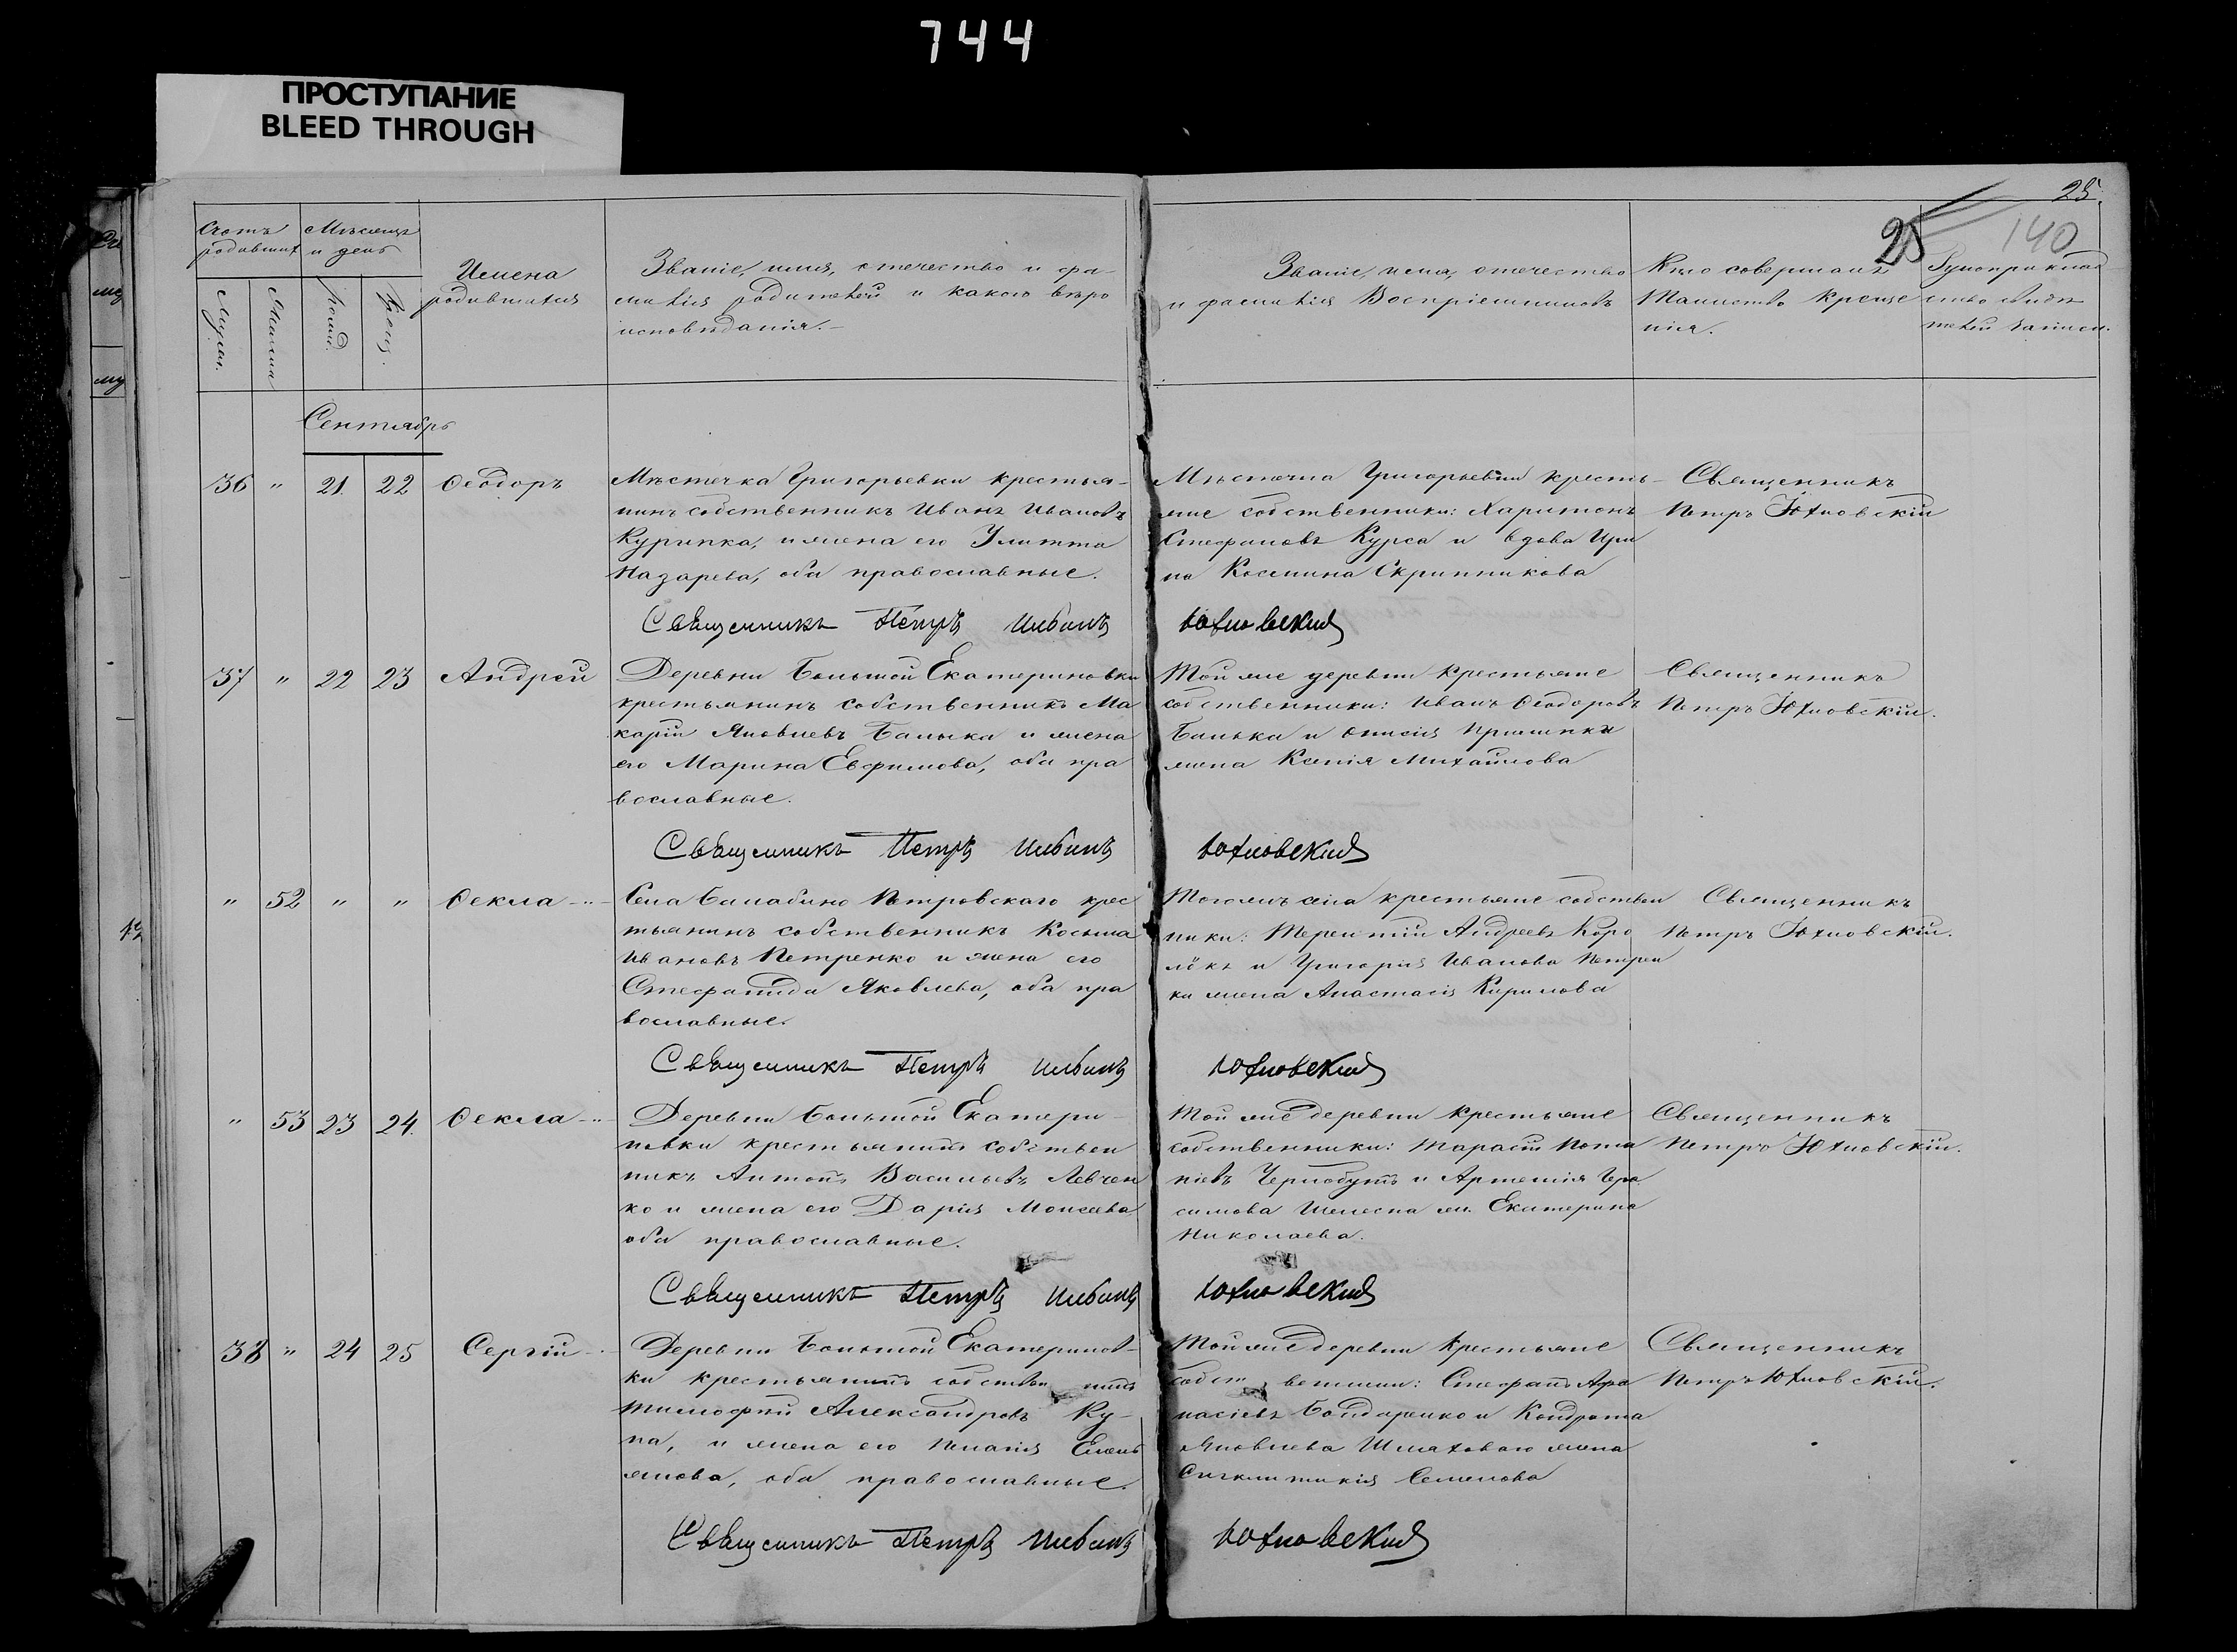 744
ПРОСТУПАНИЕ
BLEED THROUGH
25.
25
140
Счетъ родившихъ
Мѣсяцъ и день
Имена родившихся
Званіе, имя, отечество и фа-
милія родителей и какого вѣро
исповѣданія.
Званіе, имя, отечество
и фамилія Воспріемниковъ
Кто совершалъ
Таинство Креще
нія.
Рукоприклад
ство свидѣ
телей записи.
Сентябрь
36 " 21. 22 Ѳеодоръ
Мѣстечка Григорьевки крестья-
нинъ собственникъ Иванъ Ивановъ
Курипка, и жена его Улитта
Назарева, оба православные.
Мѣстечка Григорьевки кресть-
яне собственники: Харитонъ
Стефановъ Курса и вдова Ири
на Космина Скрипникова
Священникъ
Петръ Юхновскій
Священникъ Петръ Ивановъ Юхновскій
37 " 22 23 Андрей
Деревни Большой Екатериновки
крестьянинъ собственникъ Ма
карій Яковлевъ Балыка и жена
его Марина Евфимова, оба пра
вославные.
Той же деревни крестьяне
собственники: Иванъ Ѳеодоровъ
жена Ксенія Михайлова
Священникъ
Петръ Юхновскій.
Священникъ Петръ Ивановъ Юхновскій
" 52 " " Ѳекла
Села Балабино Петровскаго крес
тьянинъ собственникъ Косьма
Ивановъ Петренко и жена его
Стефанида Яковлева, оба пра
вославные.
Того же села крестьяне собствен
ники: Терентій Андреевъ Коро
лёкъ и Григорія Иванова Петрен
ка жена Анастасія Кирилова
Священникъ
Петръ Юхновскій.
Священникъ Петръ Ивановъ Юхновскій
" 53 23 24. Ѳекла
Деревни Большой Екатери-
новки крестьянинъ собствен
никъ Антонъ Васильевъ Левчен
ко и жена его Дарія Моисеева
оба православные.
Той же деревни крестьяне
собственники: Тарасій Пота
піевъ Чернобутъ и Артемія Гера
симова Шелеста ж. Екатерина
Николаева.
Священникъ
Петръ Юхновскій.
Священникъ Петръ Ивановъ Юхновскій
38 " 24 25 Сергій
Деревни Большой Екатеринов-
ки крестьянинъ собствен никъ
Тимофей Александровъ Ку-
па, и жена его Пелагія Емель
янова, оба православные.
Той же деревни крестьяне
собст венники: Стефанъ Афа
насіевъ Бондаренко и Кондрата
Яковлева Шляховаго жена
Сигклитикія Семенова
Священникъ
Петръ Юхновскій.
Священникъ Петръ Ивановъ Юхновскій